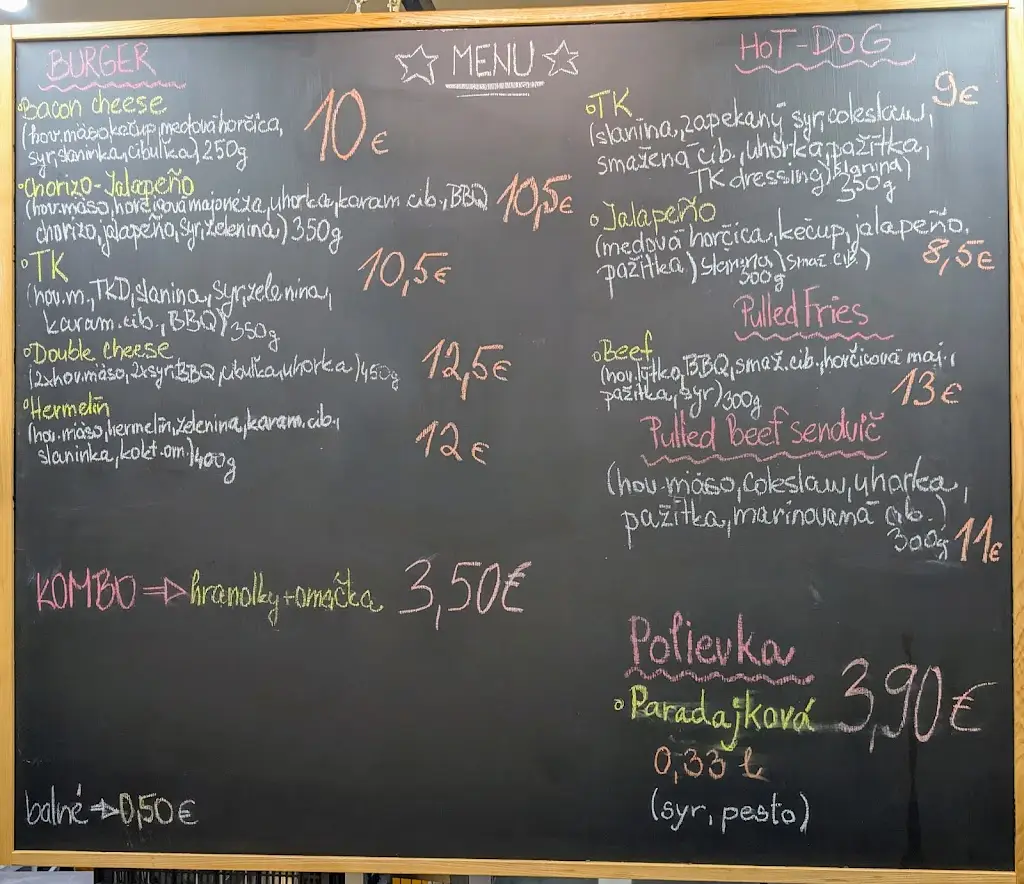 MENU
BURGER
Bacon cheese
(hov.mäso,kečup,medová horčica,
syr,slaninka,cibuľka) 250g
10€
Chorizo-Jalapeño
(hov.mäso, horčicová majonéza, uhorka, karam.cib., BBQ
chorizo, jalapeño, syr, zelenina) 350g
10,5€
TK
(hov.m., TKD, slanina, syr, zelenina,
karam.cib., BBQ) 350g
10,5€
Double cheese
(2xhov.mäso, 2xsyr, BBQ, cibuľka, uhorka) 450g
12,5€
Hermelín
(hov.mäso, hermelín, zelenina, karam.cib.,
slaninka, kokt.om.) 400g
12€
KOMBO ⇒ hranolky + omáčka 3,50€
balné ⇒ 0,50€
HOT-DOG
TK 9€
(slanina, zapekaný syr, coleslaw,
smažená cib., uhorka, pažítka,
TK dressing) (slanina)
250g
Jalapeño
(medová horčica, kečup, jalapeño,
pažítka) slanina) smaž. cib.)
300g
8,5€
Pulled Fries
Beef
(hov.lýtko, BBQ, smaž.cib., horčicová maj.,
pažítka, syr) 300g
13€
Pulled Beef sendvič
(hov.mäso, coleslaw, uhorka,
pažítka, marinovaná cib.)
300g 11€
Polievka
Paradajková 3,90€
0,33 l
(syr, pesto)